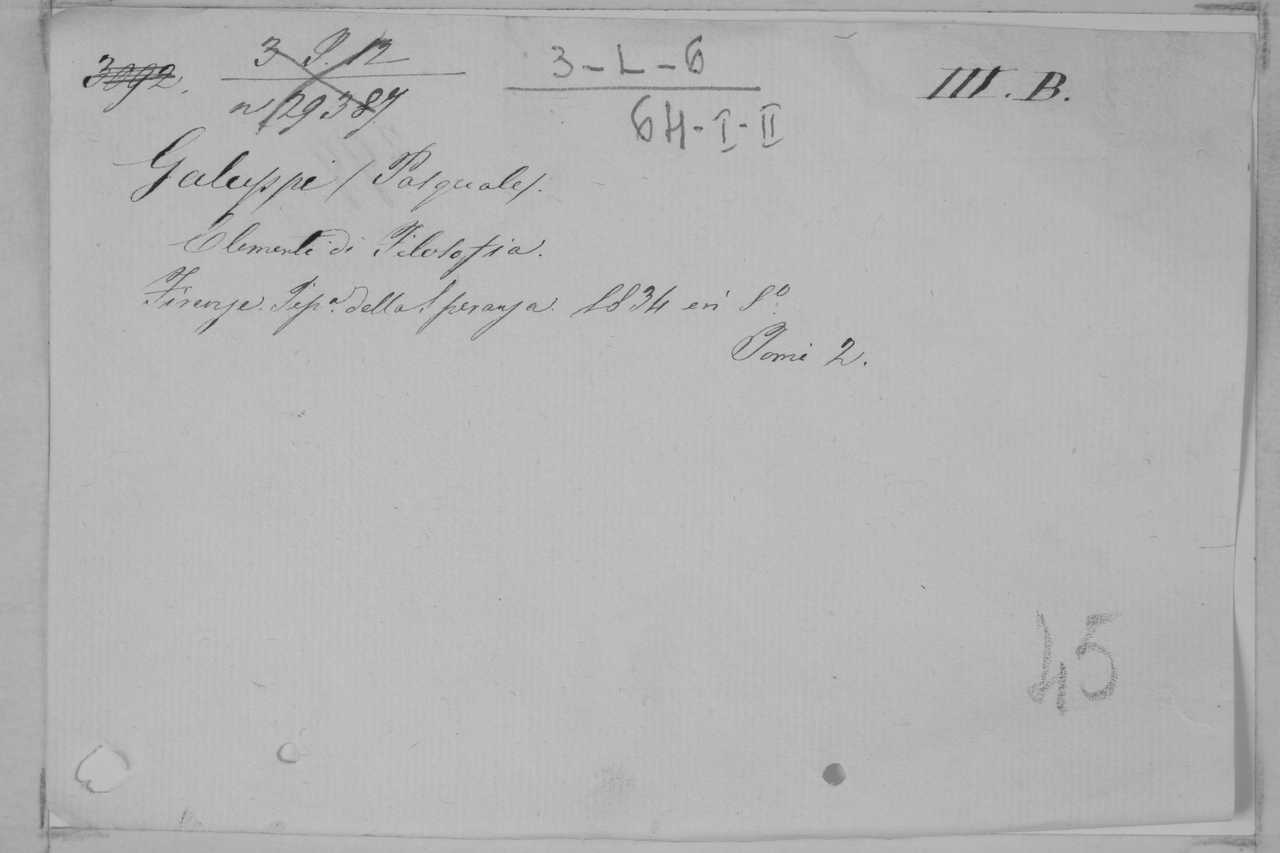 3092.
3 P. 12
n 29387
3-L-6
6H-I-II
III. B.
Galuppi (Pasquale).
Elementi di Filosofia.
Firenze. Tipª. della Speranza. 1834 in 8º
Tomi 2.
45